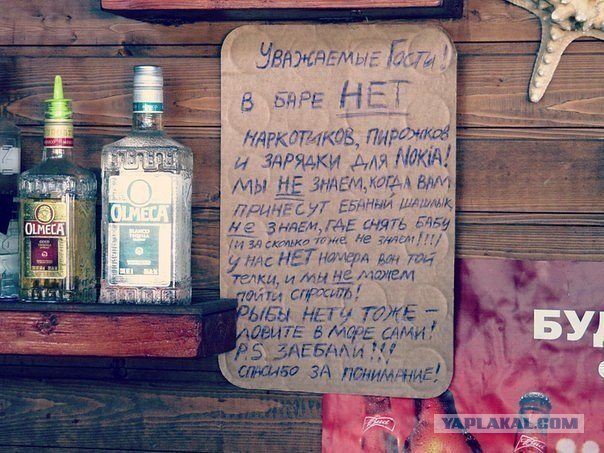 Уважаемые Гости!
В БАРЕ НЕТ
НАРКОТИКОВ, ПИРОЖКОВ
И ЗАРЯДКИ ДЛЯ NOKIA!
МЫ НЕ ЗНАЕМ, КОГДА ВАМ
ПРИНЕСУТ ЕБАНЫЙ ШАШЛЫК,
НЕ ЗНАЕМ, ГДЕ СНЯТЬ БАБУ
(И ЗА СКОЛЬКО ТОЖЕ НЕ ЗНАЕМ)!!!!
У НАС НЕТ НОМЕРА ВОН ТОЙ
ТЕЛКИ, И МЫ НЕ МОЖЕМ
ПОЙТИ СПРОСИТЬ!
РЫБЫ НЕТУ ТОЖЕ -
ЛОВИТЕ В МОРЕ САМИ!
PS ЗАЕБАЛИ!!!
СПАСИБО ЗА ПОНИМАНИЕ!
OLMECA
OLMECA
BLANCO
БУД
Bud
YAPLAKAL.COM